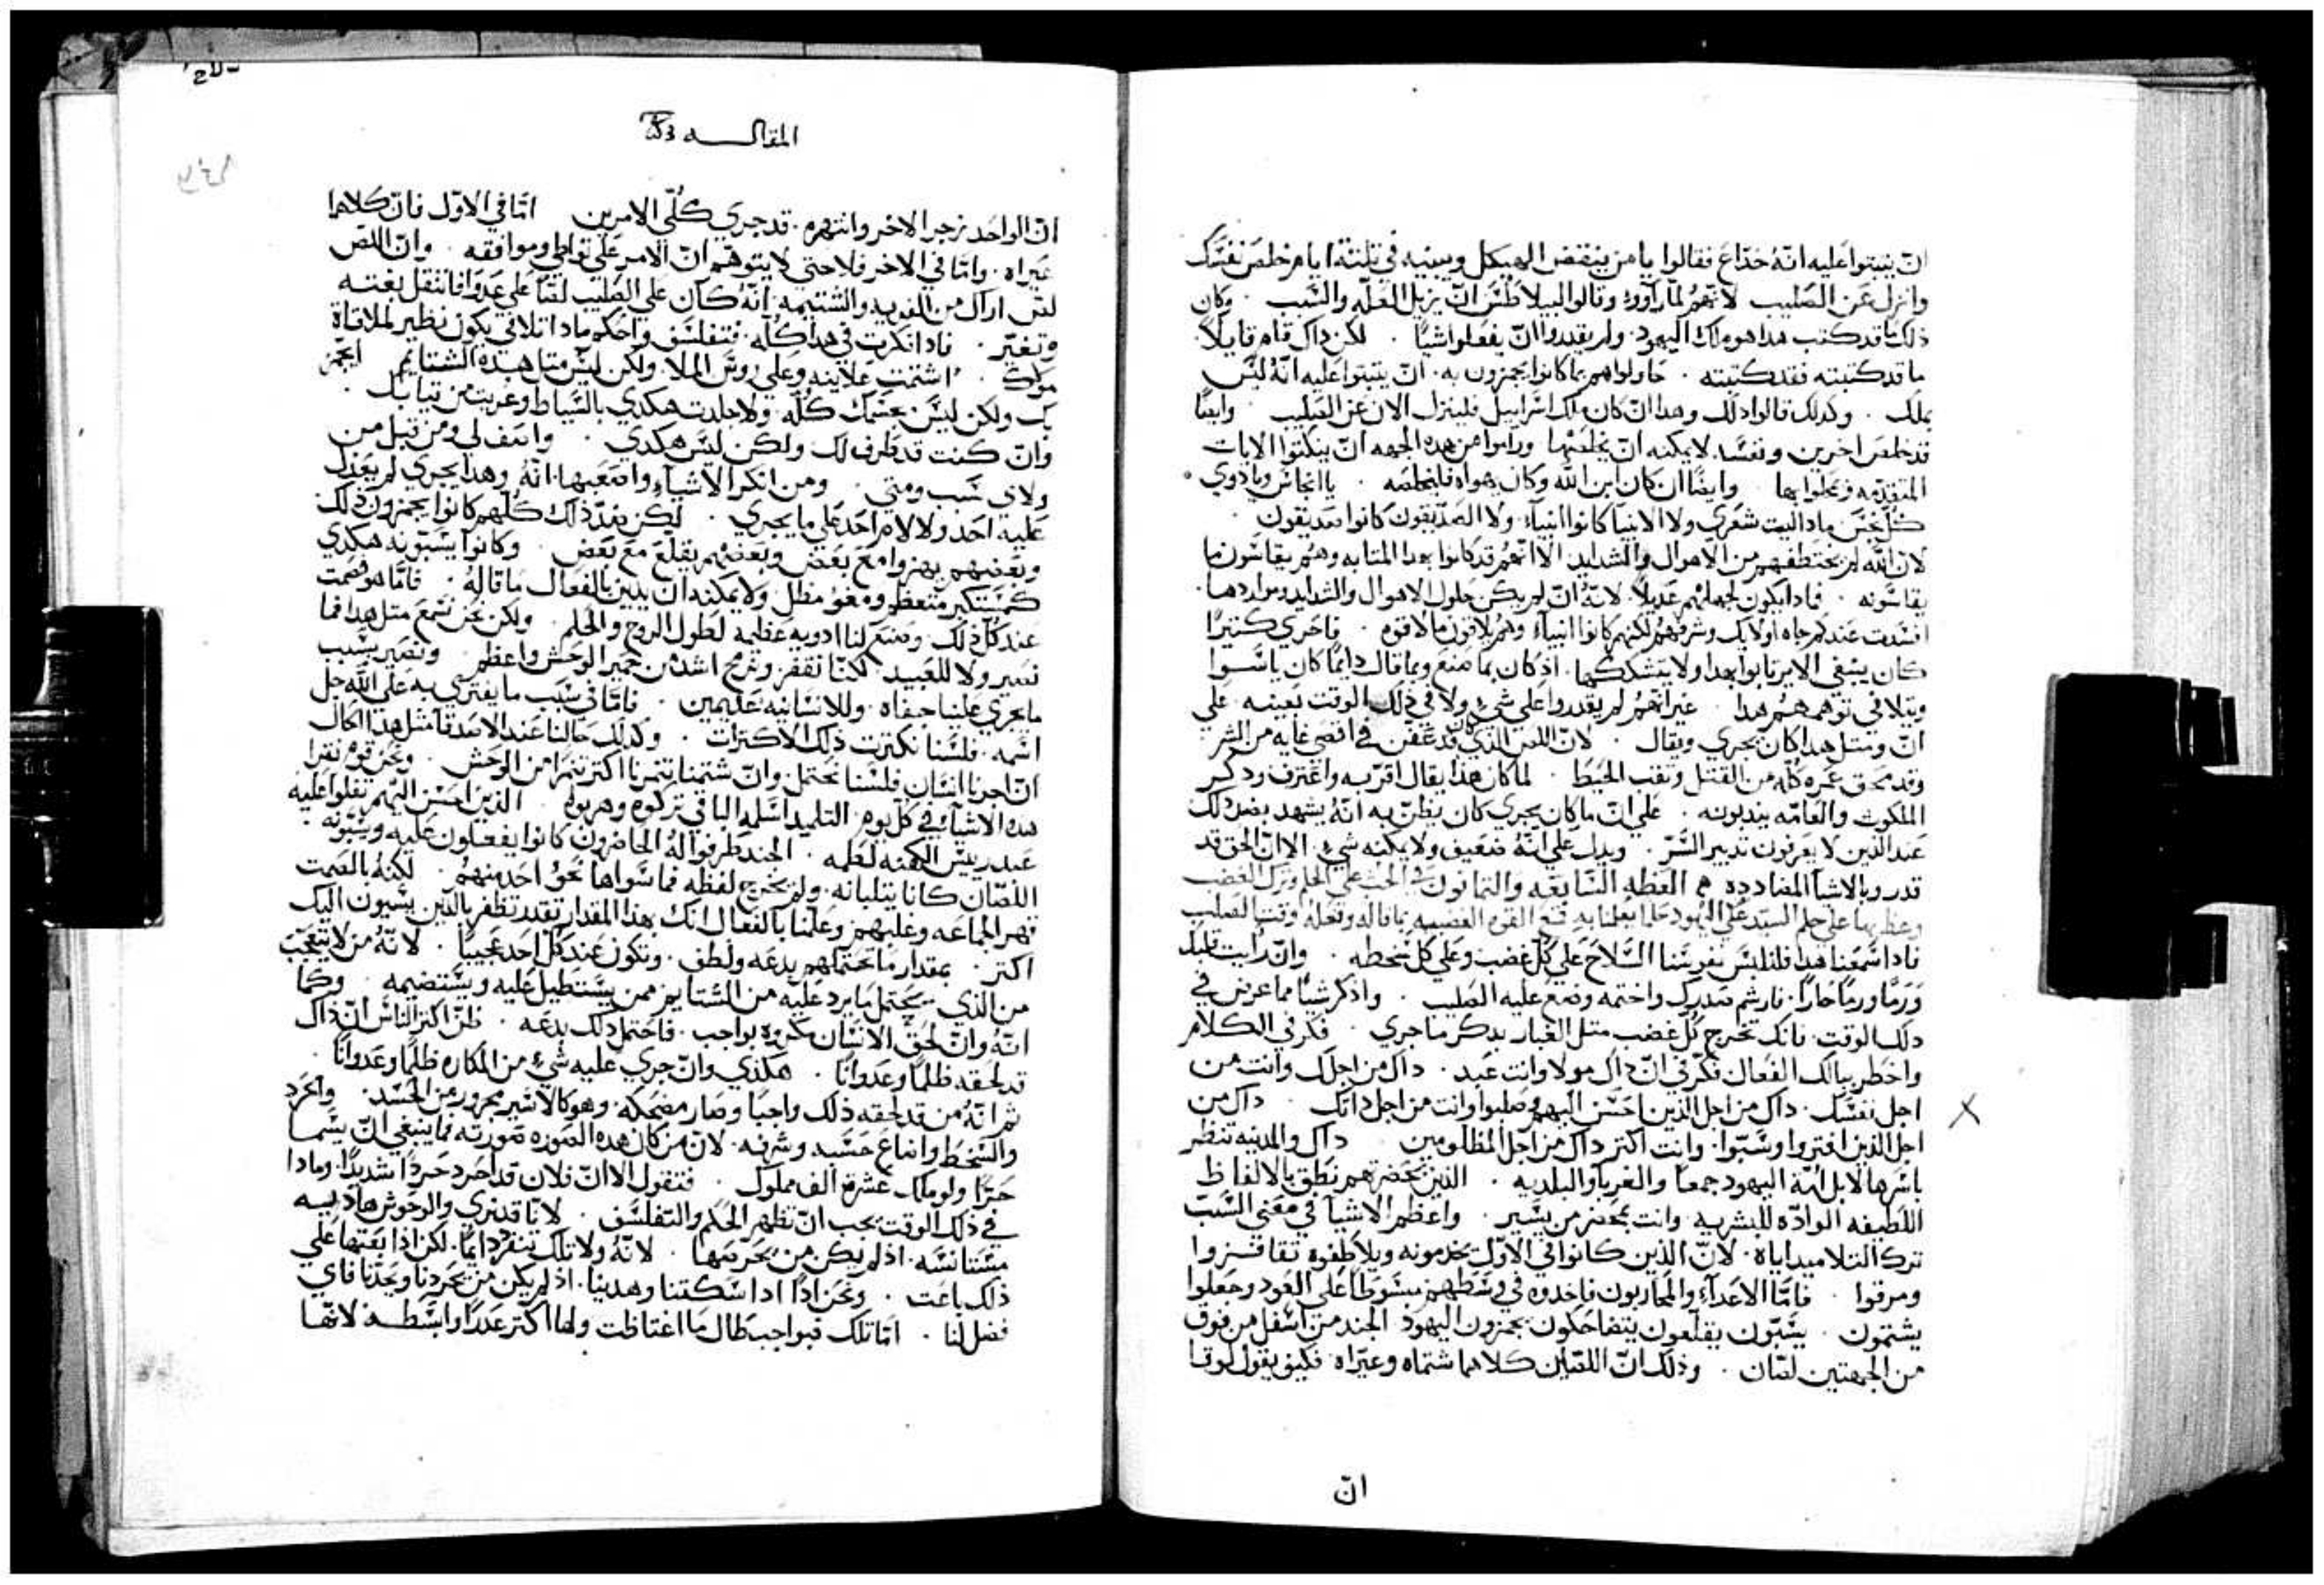 ان يثبتوا عليه انّهُ خدّاع فقالوا يا من ينقض الهيكل ويبنيه في تلتة ايام خلص نفسَّك
وانزل عَن الصَليب لانّهمُ لما راَووهُ وقالوا لبيلاطسَّ انّ يزيل العَلّه والسَّبب . وكان
ذلك ما قد كتب هدا هو ملك اليهود . ولم يقدروا انّ يفعَلوا شيًا . لكن داك قام قايلًا.
ما قد كتبته فقد كتبته . حَاولوا هم بما كانوا يجمزون به . انّ يتبتوا عَليه انّهُ ليسَّ
بملك . وكدلك قالوا دلك وهدا انّ كان ملك اسَّراييل فلينزل الان عَن الصَليب . وايضًا
قد خلصَ اخرين ونفسَّه لا يمكنه انّ يخلصَها وراموا من هده الجهه انّ يبكتوا الايات
المتقدّمه وايضًا ان كان ابن اللّه وكان يهواه فليخلصَه . يا انجاسَ ويا دوي
كلّ نجسَّ مادا ليت شعَري ولا الانبيا كانوا انبيآء ولا الصَدّيقون كانوا صَديقون .
لان اللّه لم يختطفهم من الاهوال والشدايد الا انّهمُ قد كانوا بهدا المتابه وهمُ يقاسَّون ما
يقاسَّونه . فمادا يكون لجهلهم عَديلًا. لانّهُ انّ لم يكن حَلول الاهوال والشدايد ومواردها.
افسَّدت عَندكم جاه اولايك وشرفهمُ لكنهم كانوا انبيآء وهم يلاقون ما لاقوه . فاحَري كتيرًا
كان ينبغي الا ترتابوا بهدا ولا يتشككهما . اد كان بما صَنعَ وبما قال دايمًا كان ياسَّوا
ويتلافي توهمهمُ هدا . غير انّهمُ لم يقدروا علي شيٍ ولا في ذلك الوقت بعَينه . علي
انّ ومتل هدا كان يجري ويقال . لانّ اللصَ الذي كان قد عَفّن في اقصَي غايه من الشر
وقد محَق عَمره كلّه من القتل ونقب الحَيط . لما كان هدا يقال اقرّ به واعَترف ودكر
الملكوت والعَامّه يندبونه . علي انّ ما كان يجري كان يظنّ به انّهُ يشهد بضد دلك
عَند الدّين لا يعَرفون تدبير السَّرّ . ويدل عَلي انّهُ ضعَيف ولا يمكنه شيٍ . الا انّ الحَق قد
قدر وبالاشيآ المضادده العَظه السَّابعَه والتمانون في الحَت علي الحَلم وترك الغضب
وعَظ بها علي حلم السيّد علي اليهود القوه الغضبيه بما قاله وفعَلهُ وقت الصَليب
فادا سَّمعَنا هدا فلنلبسَّ نفوسَّنا السَّلاحَ علي كُل غضب وعَلي كل سَّخطه . وانّ رايت قلبك
وَرَمًا ورمًا حَارًا. فارشم صَدرك واختمه وضَعَ عَليه الصَليب . واذكر شيًا مما عَرضَ في
دلك الوقت . فانك تخرج كُلّ غضب متل الغبار بدكر ما جري . فكر في الكلام
واخطر ببالك الفعَال فكّر في انّ داك مولا وانت عَبد . داك من اجلك وانت من
اجل نفسَّك . داك من اجل الّذين احَسَّن اليهم وصَلبوا وانت من اجل داتك . داك من
اجل الذين افتروا وسَّبّوا. وانت اكتر داك من اجل المظلومين داك والمدينه تنظر
باسَّرها لا بل امّة اليهود جمعًا والغربا والبلديه . الذين بحَضرتهم نطق بالالفاظ
اللطيفه الوادّه للبشريه وانت بحَضر من يسَّير . واعَظم الاشيآ في معَني السَّبّ
ترك التلاميد اياه . لانّ الذين كانوا في الاوّل يخدمونه ويلاطفوه تقافزوا
ومرقوا . فامّا الاعَدآء والمحَاربون فاخدوه في وسَّطهم مبسَّوطًا عَلي العَود وجعَلوا
يشتمون . يسَّبّون يقلعَون يتضاحَكون يجمزون اليهود الجند من اسَّفل من فوق
من الجهتين لصَان . وذلك انّ اللصَين كلاهما شتماه وعيّراه . فكيف يقول لوقا
انّ
المقاله
انّ الواحَد زجر الاخر وانتهره . قد جري كُلّي الامرين امّا في الاوّل فانّ كلاهما
عَيراه . وامّا في الاخر فلا حتي لا يتوهّم انّ الامر علي تواطي وموافقه . وانّ اللصَ
انّهُ كان علي الصَليب لصًا علي عَدَوًا فانتقل بغته
وتغيّر . فادا فكرت في هدا كُله . فتفلسَّف واحَكم مادا تلاقي يكون نظير لملاقاة
مولاك . اشتمت عَلانيه وعَلي روسَّ الملا. ولكن ليسَّ متل هده الشتايم
بك ولكن ليسَّ جسَّمك كُلّه . ولا جلدت هكدي بالسَّياط وعَريت من تيابك .
وانّ كنت قد طرف لك ولكن ليسَّ هكدي . واضف لي ومن قبل من
ولاي سَّبب ومتي . ومن انكر الاشيآء واصَعَبها . انّهُ وهدا يجري لم يعَذل
عَليه احَد ولا لام احَد علي ما يجري . لكن بضدّ ذلك كُلّهم كانوا يجمزون ذلك
وبعَضهم يهزوا معَ بعَض وبعَضهم يقلّعَ معَ بعَض . وكانوا يسَّبّونه هكدي
كمسَّتكبر متعَظم ومغوٍ مظل ولا يمكنه انّ يبين بالفعَال ما قاله . فامّا هو فصَمت
عَند كُلّ ذلك . وصَنعَ لنا ادويه عَظيمة لطول الروح والحَلم . ولكن نحَن نسَّمعَ متل هدا فما
نصَبر ولا للعَبيد لكنّا نقفز ونرمحَ اشد من حَمير الوحَش واعَظم . ونصَير بسَّبب
ما يجري عَلينا جفاه . وللانسَّانيه عَديمين . فامّا في سَّبب ما يفتري به علي اللّه جل
اسَّمه . فلسَّنا نكترت ذلك الاكترات . وكدلك حَالنا عَند الاصَدقا متل هدا الحَال
انّ احزنا انسَّان فلسَّنا نحَتمل وانّ شتمنا يتنمرنا اكتر تنمرًا من الوحَش . ونحَن قوم نقرا
هده الاشيآء في كل يوم . التلميد اسَّلمه الباقي تركوه وهربوا . الدين احسَّن اليهم تفلوا عليه
عَبد رييسَّ الكهنه لطمه . الجند طرفوا لهُ الحاضرون كانوا يفعَلون عَليه ويسَّبّونه .
اللصَان كانا يتلبانه . ولم يخرج لفظه فما سَّواها نحَو احَد منهمُ . لكنهُ بالصَمت
قهر الجماعَه وغلبهم وعَلّمنا بالفعَال انك بهذا المقدار تقدر تظفر بالّدين يسَّيون اليك
اكتر . بمقدار ما تحَتملهم بدعَه ولطف . وتكون عَند كُلّ احَد عَجيبًا . لانّهُ من لا يتعَجّب
من الذي يحَتمل ما يرد عليه من الشتايم ممن يسَّتطيل عَليه ويسَّتضيمه . وكما
انّهُ وانّ لحَق الانسَّان مكروه بواجب . فاحَتمل دلك بدعَه . ظنّ اكتر الناسَّ انّ ذاك
قد لحَقه ظلمًا وعَدوانًا . هكذي وانّ جري عليه شيٍ من المكاره ظلمًا وعَدوانًا .
تم انّهُ من قد لحَقه ذلك واجبًا وصَار مضحَكه . وهو كالاسَّير مجرور عن الحَسَّد . والحَرد
والسَّخط واضاعَ حَسَّبه وشرفه . لانّ من كان هده الصَوره صَورته فما ينبغي انّ يسَّما
حَرًا ولو ملك عشرة الف مملوك . فتقول الا انّ فلان قد احَرد حَردًا شديدًا . وما دا
في ذلك الوقت يجب انّ تظهر الحَكم والتفلسَّف . لانّا قد نري والوحَوش هاديه
مسَّتانسَّه . اذ لم يكن من يحَرمها . لانّهُ ولا تلك تنفر دايمًا . لكن اذا بعَتها علي
ذلك باعَت . ونحَن اذًا ادا سَّكتنا وهدينا . اذ لم يكن من يحَردنا ويحَدّنا فاي
فضل لنا . امّا تلك فبواجب طال ما اغتاظت ولها اكتر عَدرًا وابسَّطه لانّها